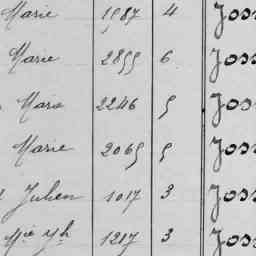 Marie 1987 4 Joss
Marie 2855 6 Joss
Marie 2246 5 Joss
Marie 2065 5 Joss
Julien 1017 3 Joss
Mie Yh 1217 3 Joss